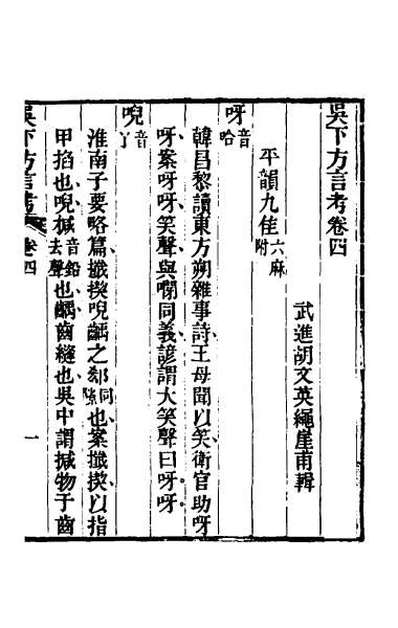 吳下方言考卷四
武進胡文英繩崖甫輯
平韻九佳六麻附
呀音哈
韓昌黎讀東方朔雜事詩王母聞以笑衛官助呀
呀案呀呀笑聲與閑同義諺謂大笑聲曰呀呀
唲音丫
淮南子要略篇攕揳唲齵之郄同隙也案攕揳以指
甲掐也唲搣音鉛去聲也齵齒縫也吳中謂搣物于齒
吳下方言考 卷四 一